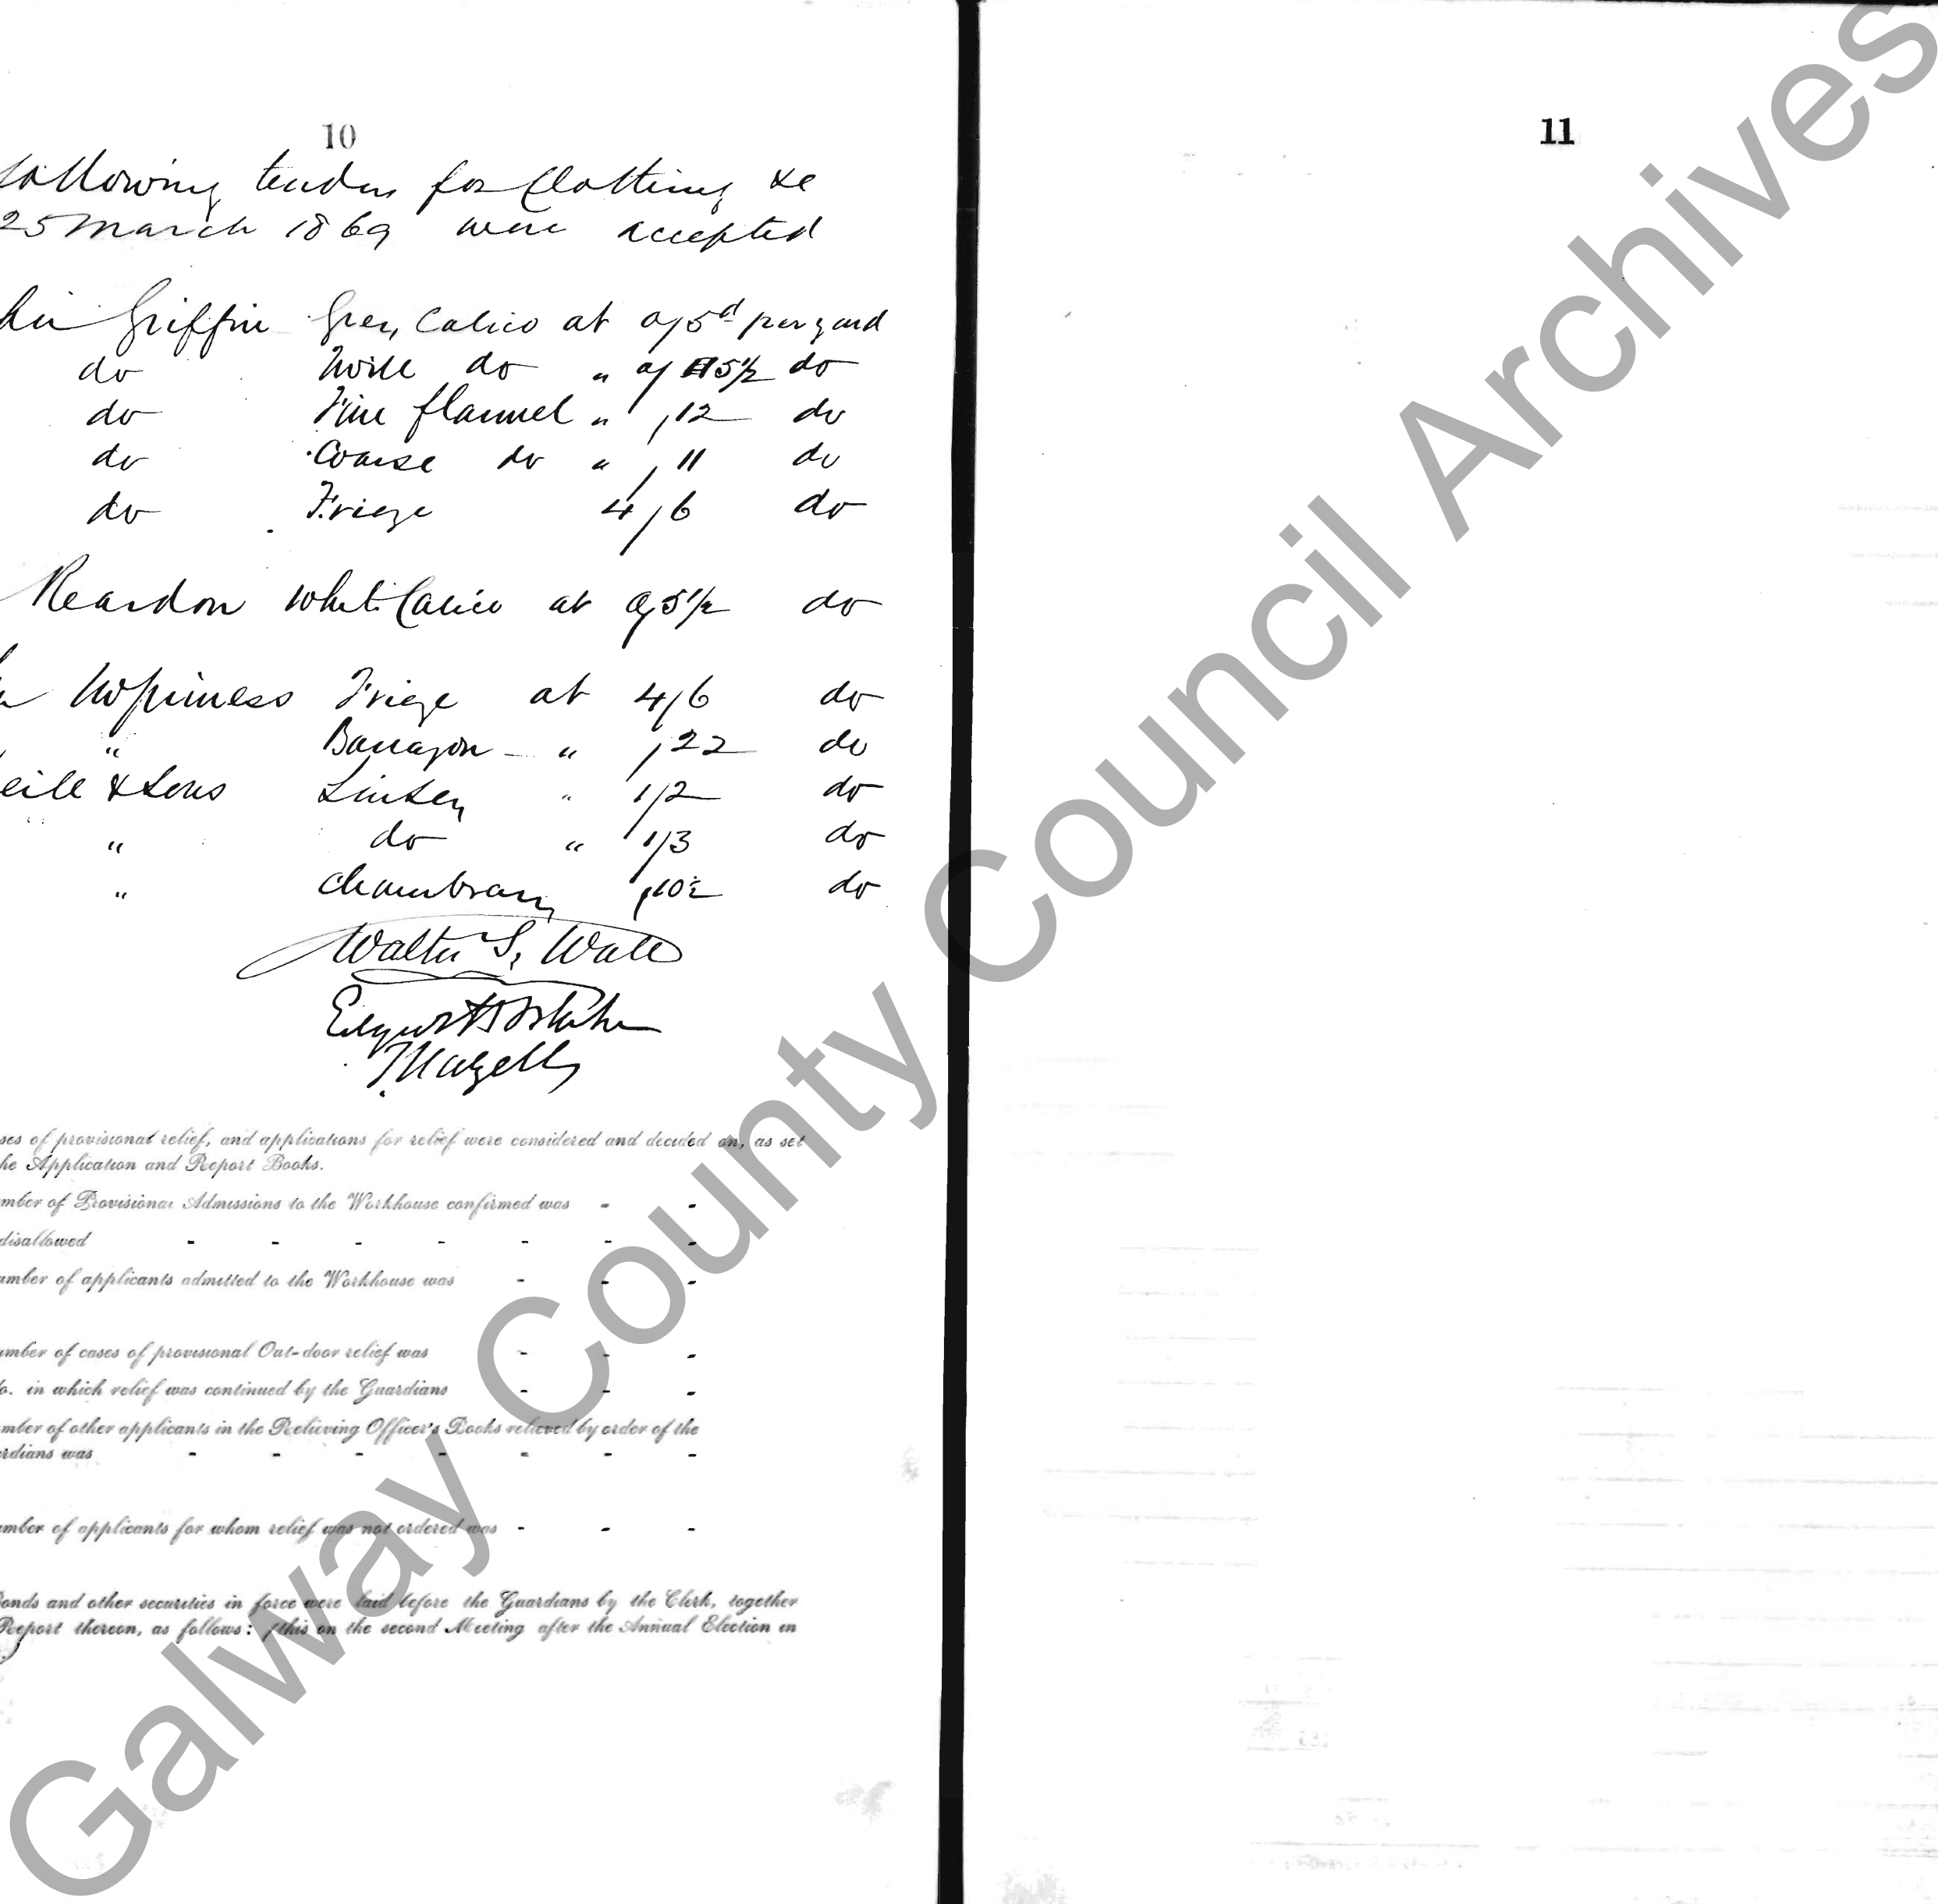 10
following tenders for Clothing &c
25 March 1869 were accepted
Griffin Grey Calico at 0/5d per yard
do Twill do " 0/5½ do
do Fine flannel " /12 do
do Coarse do " /11 do
do Frieze 4/6 do
Reardon White Calico at 0/5½ do
Hopiness Frieze at 4/6 do
" Barragon - " /22 do
eill & Sons Linsey " 1/2 do
" do " 1/3 do
" Chambray /10½ do
Walter S. Wall
ses of provisional relief, and applications for relief were considered and decided on, as set
he Application and Report Books.
mber of Provisional Admissions to the Workhouse confirmed was - -
disallowed - - - - - - -
umber of applicants admitted to the Workhouse was - - -
umber of cases of provisional Out-door relief was - - -
o. in which relief was continued by the Guardians - - -
mber of other applicants in the Relieving Officer's Books relieved by order of the
rdians was - - - - - - -
umber of applicants for whom relief was not ordered was - - -
Bonds and other securities in force were laid before the Guardians by the Clerk, together
Report thereon, as follows: (this on the second Meeting after the Annual Election in
11
Galway County Council Archives